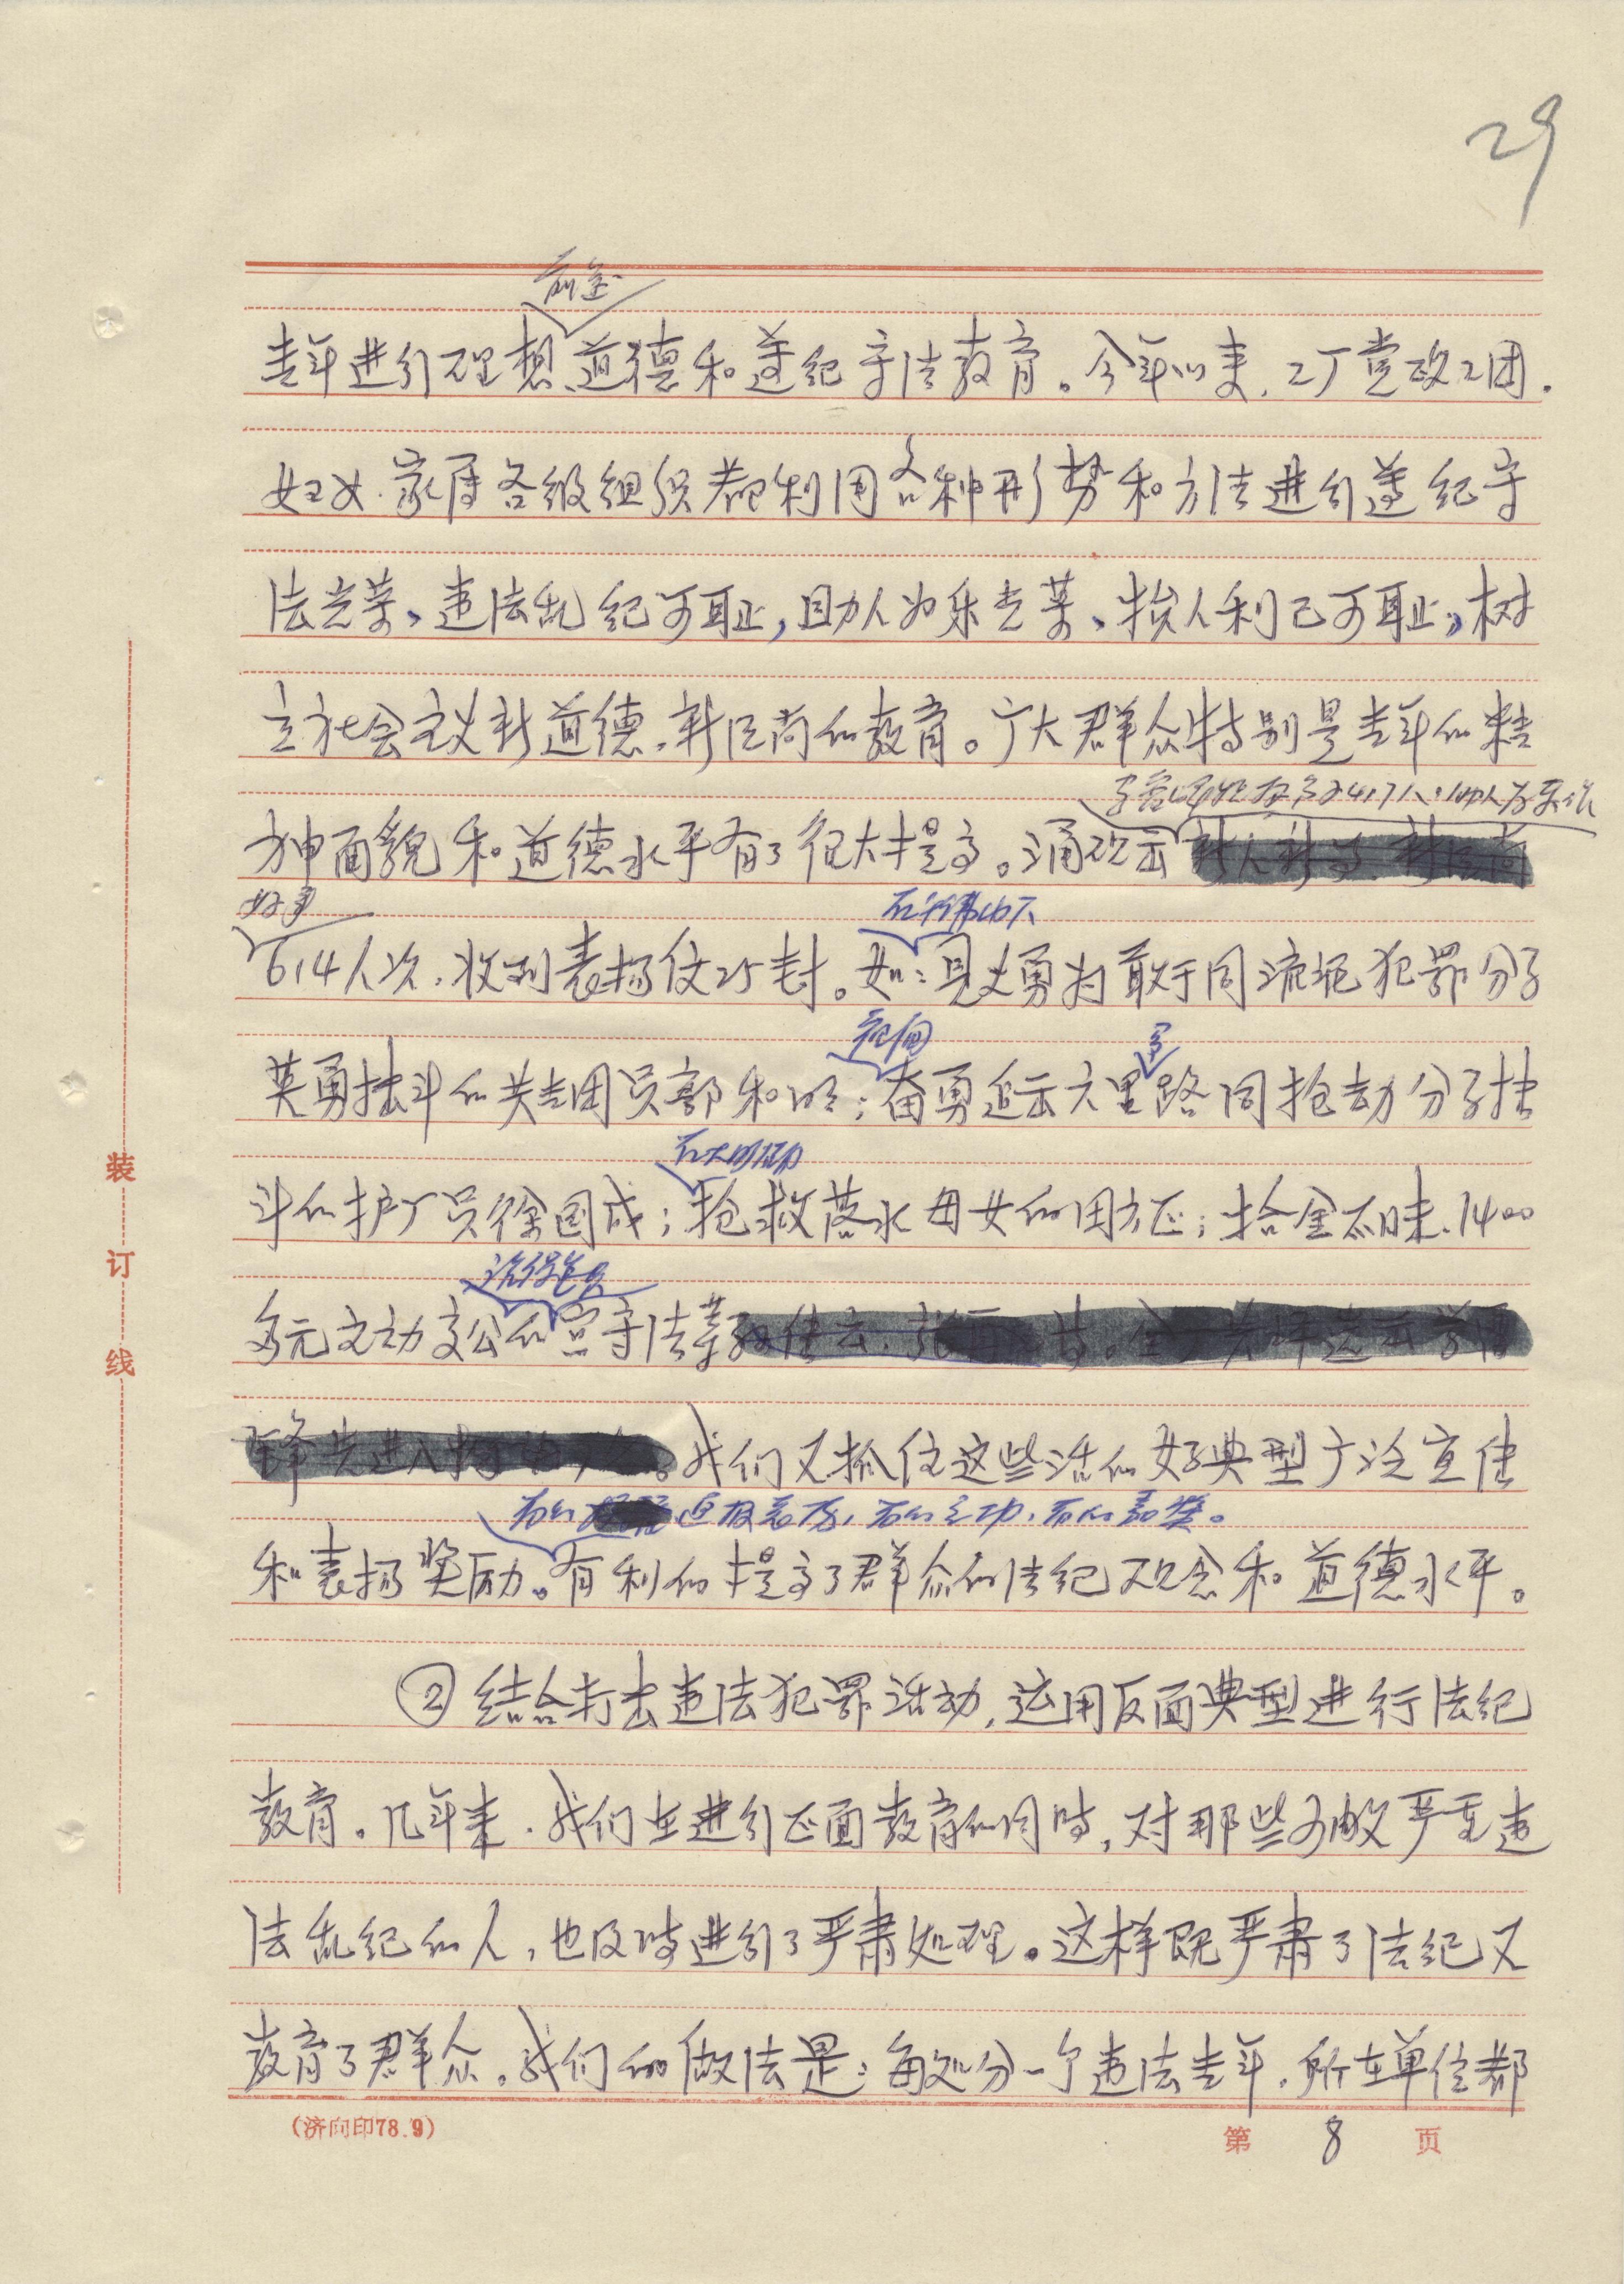 29
前途
青年进行理想、道德和遵纪守法教育。今年以来，工厂党政工团，
妇女、家属各级组织都利用各种形势和方法进行遵纪守
法光荣、违法乱纪可耻，助人为乐光荣、损人利己可耻，树
立社会主义新道德，新风尚的教育。广大群众特别是青年的精
神面貌和道德水平有了很大提高。涌现出
好事
614人次，收到表扬信25封。如：见义勇为敢于同流氓犯罪分子
英勇搏斗的共青团员郭和明；奋勇追出六里路同抢劫分子搏
斗的护厂员徐国成；抢救落水母女的田方正；拾金不昧，1400
多元主动交公的宫守法等
我们又抓住这些活的好典型广泛宣传
有的通报表扬，有的立功，有的嘉奖。
和表扬奖励。有利的提高了群众的法纪观念和道德水平。
②结合打击违法犯罪活动，运用反面典型进行法纪
教育。几年来，我们在进行正面教育的同时，对那些少数严重违
法乱纪的人，也及时进行了严肃处理。这样既严肃了法纪又
教育了群众。我们的做法是：每处分一个违法青年，所在单位都
装订线
（济向印78.9）
第 8 页